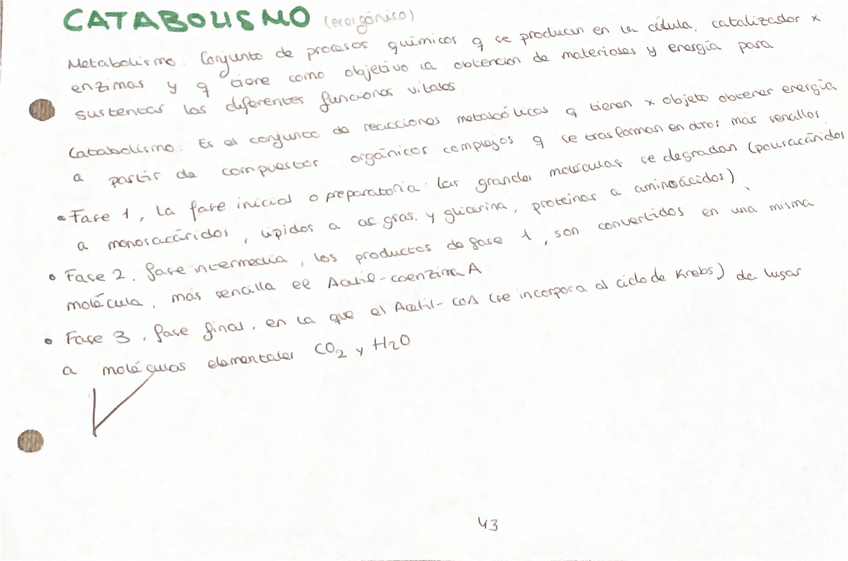 CATABOLISMO (exorgónico)
Metabolismo: Conjunto de procesos químicos q se producen en la célula, catalizador x
enzimas y q tiene como objetivo la obtención de materiales y energía para
sustentar las diferentes funciones vitales.
Catabolismo: Es el conjunto de reacciones metabólicas q tienen x objeto obtener energía
a partir de compuestos orgánicos complejos q se trasforman en otros más sencillos
• Fase 1, la fase inicial o preparatoria: las grandes moléculas se degradan (polisacáridos
a monosacáridos, lípidos a ac gras. y glicerina, proteínas a aminoácidos)
• Fase 2, fase intermedia, los productos de fase 1, son convertidos en una misma
molécula, más sencilla el Acetil-coenzima A
• Fase 3, fase final, en la que el Acetil-coA (se incorpora al ciclo de Krebs) da lugar
a moléculas elementales CO2 y H2O
43